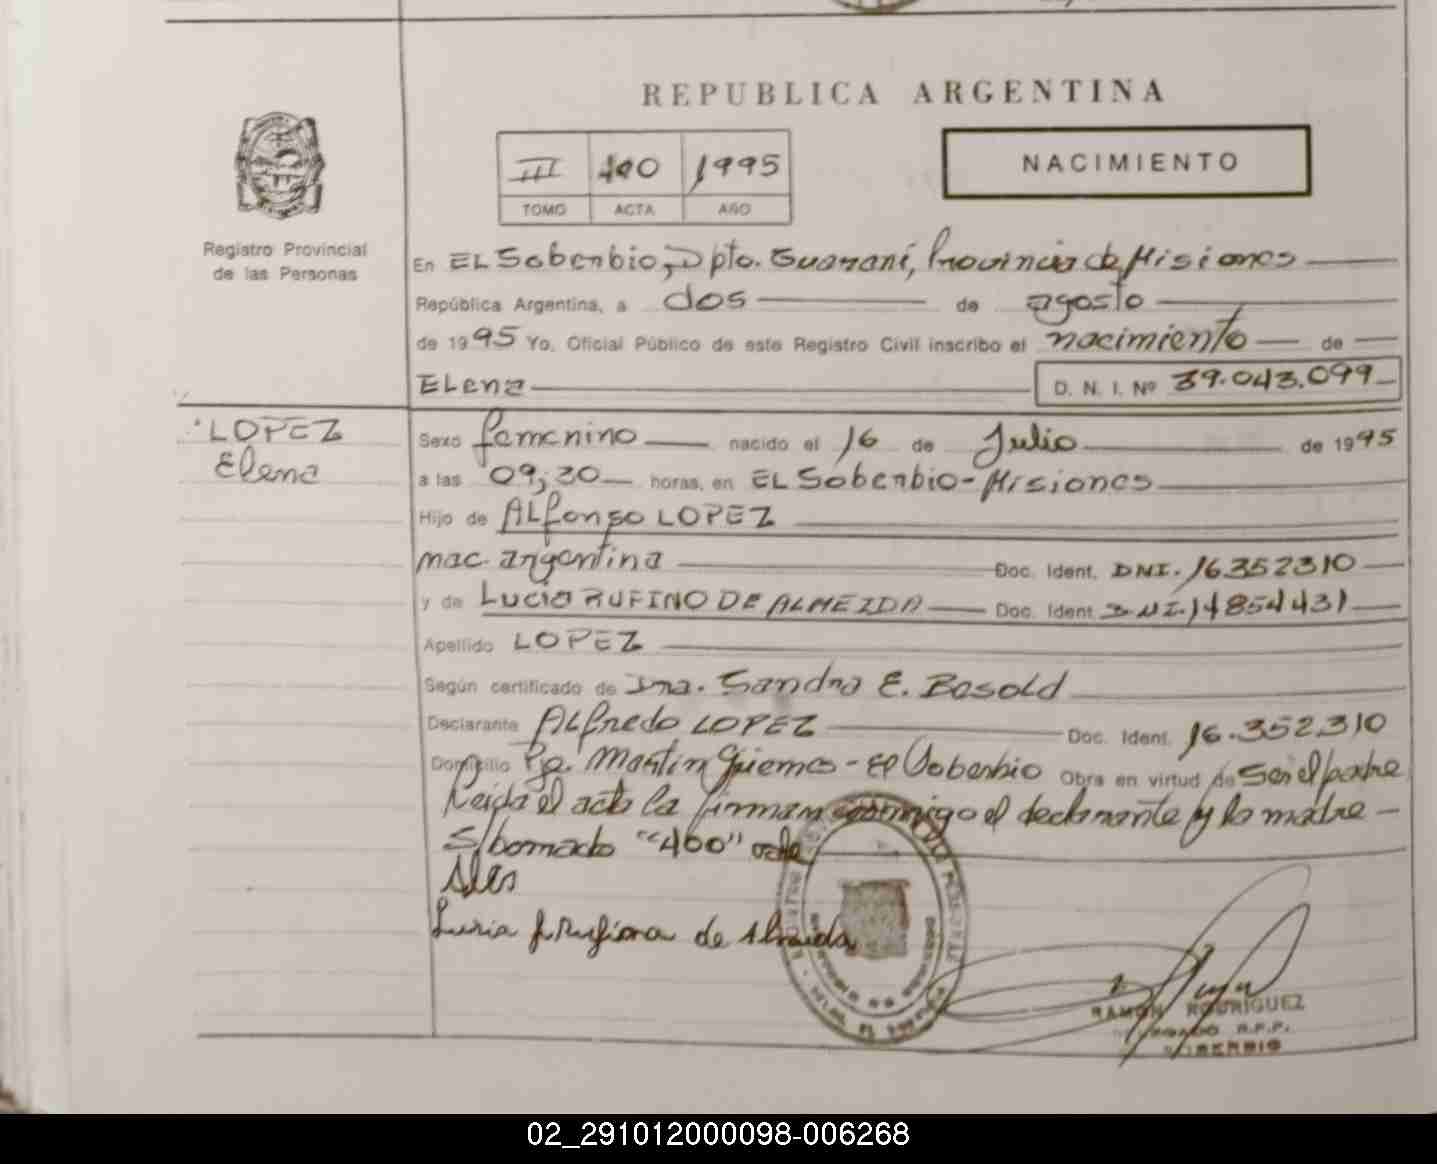 REPUBLICA ARGENTINA
III 400 1995
TOMO ACTA AÑO
NACIMIENTO
Registro Provincial
de las Personas
En EL Soberbio, Dpto. Guaraní, Provincia de Misiones
República Argentina, a dos de agosto
de 1995 Yo, Oficial Público de este Registro Civil inscribo el nacimiento de
ELena D. N. I. Nº 39.043.099
LOPEZ
Elena
Sexo femenino nacido el 16 de Julio de 1995
a las 09,30 horas, en EL Soberbio-Misiones
Hijo de ALfonso LOPEZ
nac. argentina Doc. Ident. DNI. 16352310
y de Lucia RUFINO DE ALMEIDA Doc. Ident. DNI. 14854431
Apellido LOPEZ
Según certificado de Dra. Sandra E. Besold
Declarante ALfredo LOPEZ Doc. Ident. 16.352310
Domicilio Pje. Martin Güemes - El Soberbio Obra en virtud de Ser el padre
Leida el acta la firman conmigo el declarante y la madre
S/borrado "400" vale
de Almeida
RAMON RODRIGUEZ
R.P.P.
SOBERBIO
02_291012000098-006268